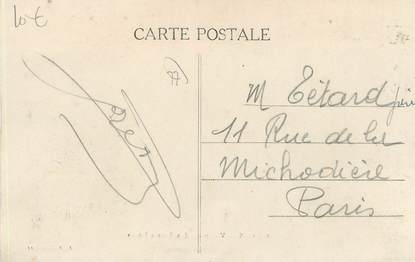 10€
CARTE POSTALE
M Tétard père
11 Rue de la
Michodière
Paris